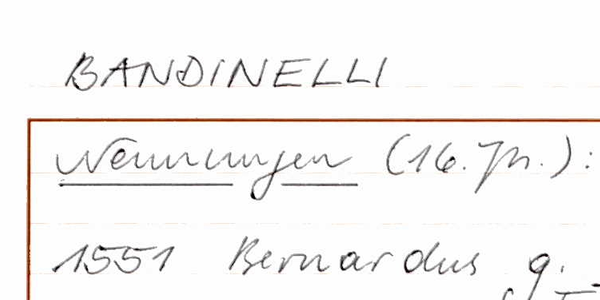 BANDINELLI
Nennungen (16. Jh.):
1551 Bernardus q.